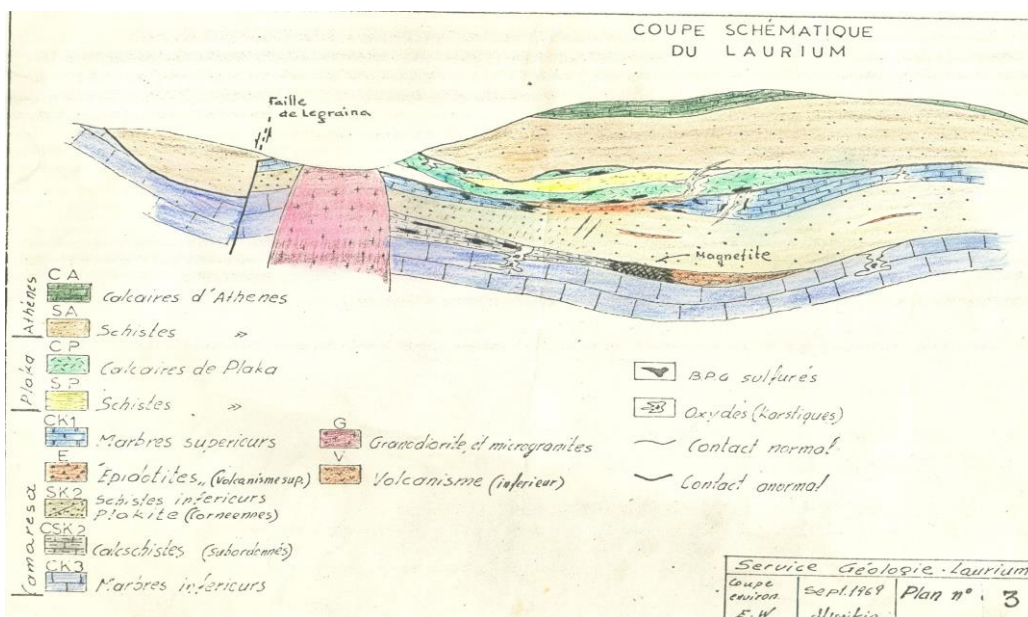 COUPE SCHÉMATIQUE
DU LAURIUM
Faille
de Legraina
Magnetite
Athènes
CA
Calcaires d'Athenes
SA
Schistes »
Plaka
CP
Calcaires de Plaka
SP
Schistes »
Kamareza
CK1
Marbres superieurs
E
Epidotites,, (Volcanisme sup.)
SK2
Schistes inferieurs
Plakite (Corneennes)
CSK2
Calcschistes (subordennés)
CK3
Marbres inferieurs
G
Granodiorite, et microgranites
V
Volcanisme (inferieur)
B.P.G sulfurés
Oxydés (karstiques)
Contact normal
Contact anormal
Service Géologie - Laurium
Coupe
environ
E.W
Sept. 1969
Plan n° . 3